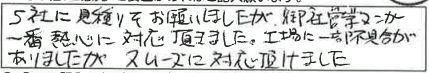 5社に見積りをお願いしましたが、御社営業マンが
一番熱心に対応頂きました。工場に一部不具合が
ありましたが スムーズに対応頂けました